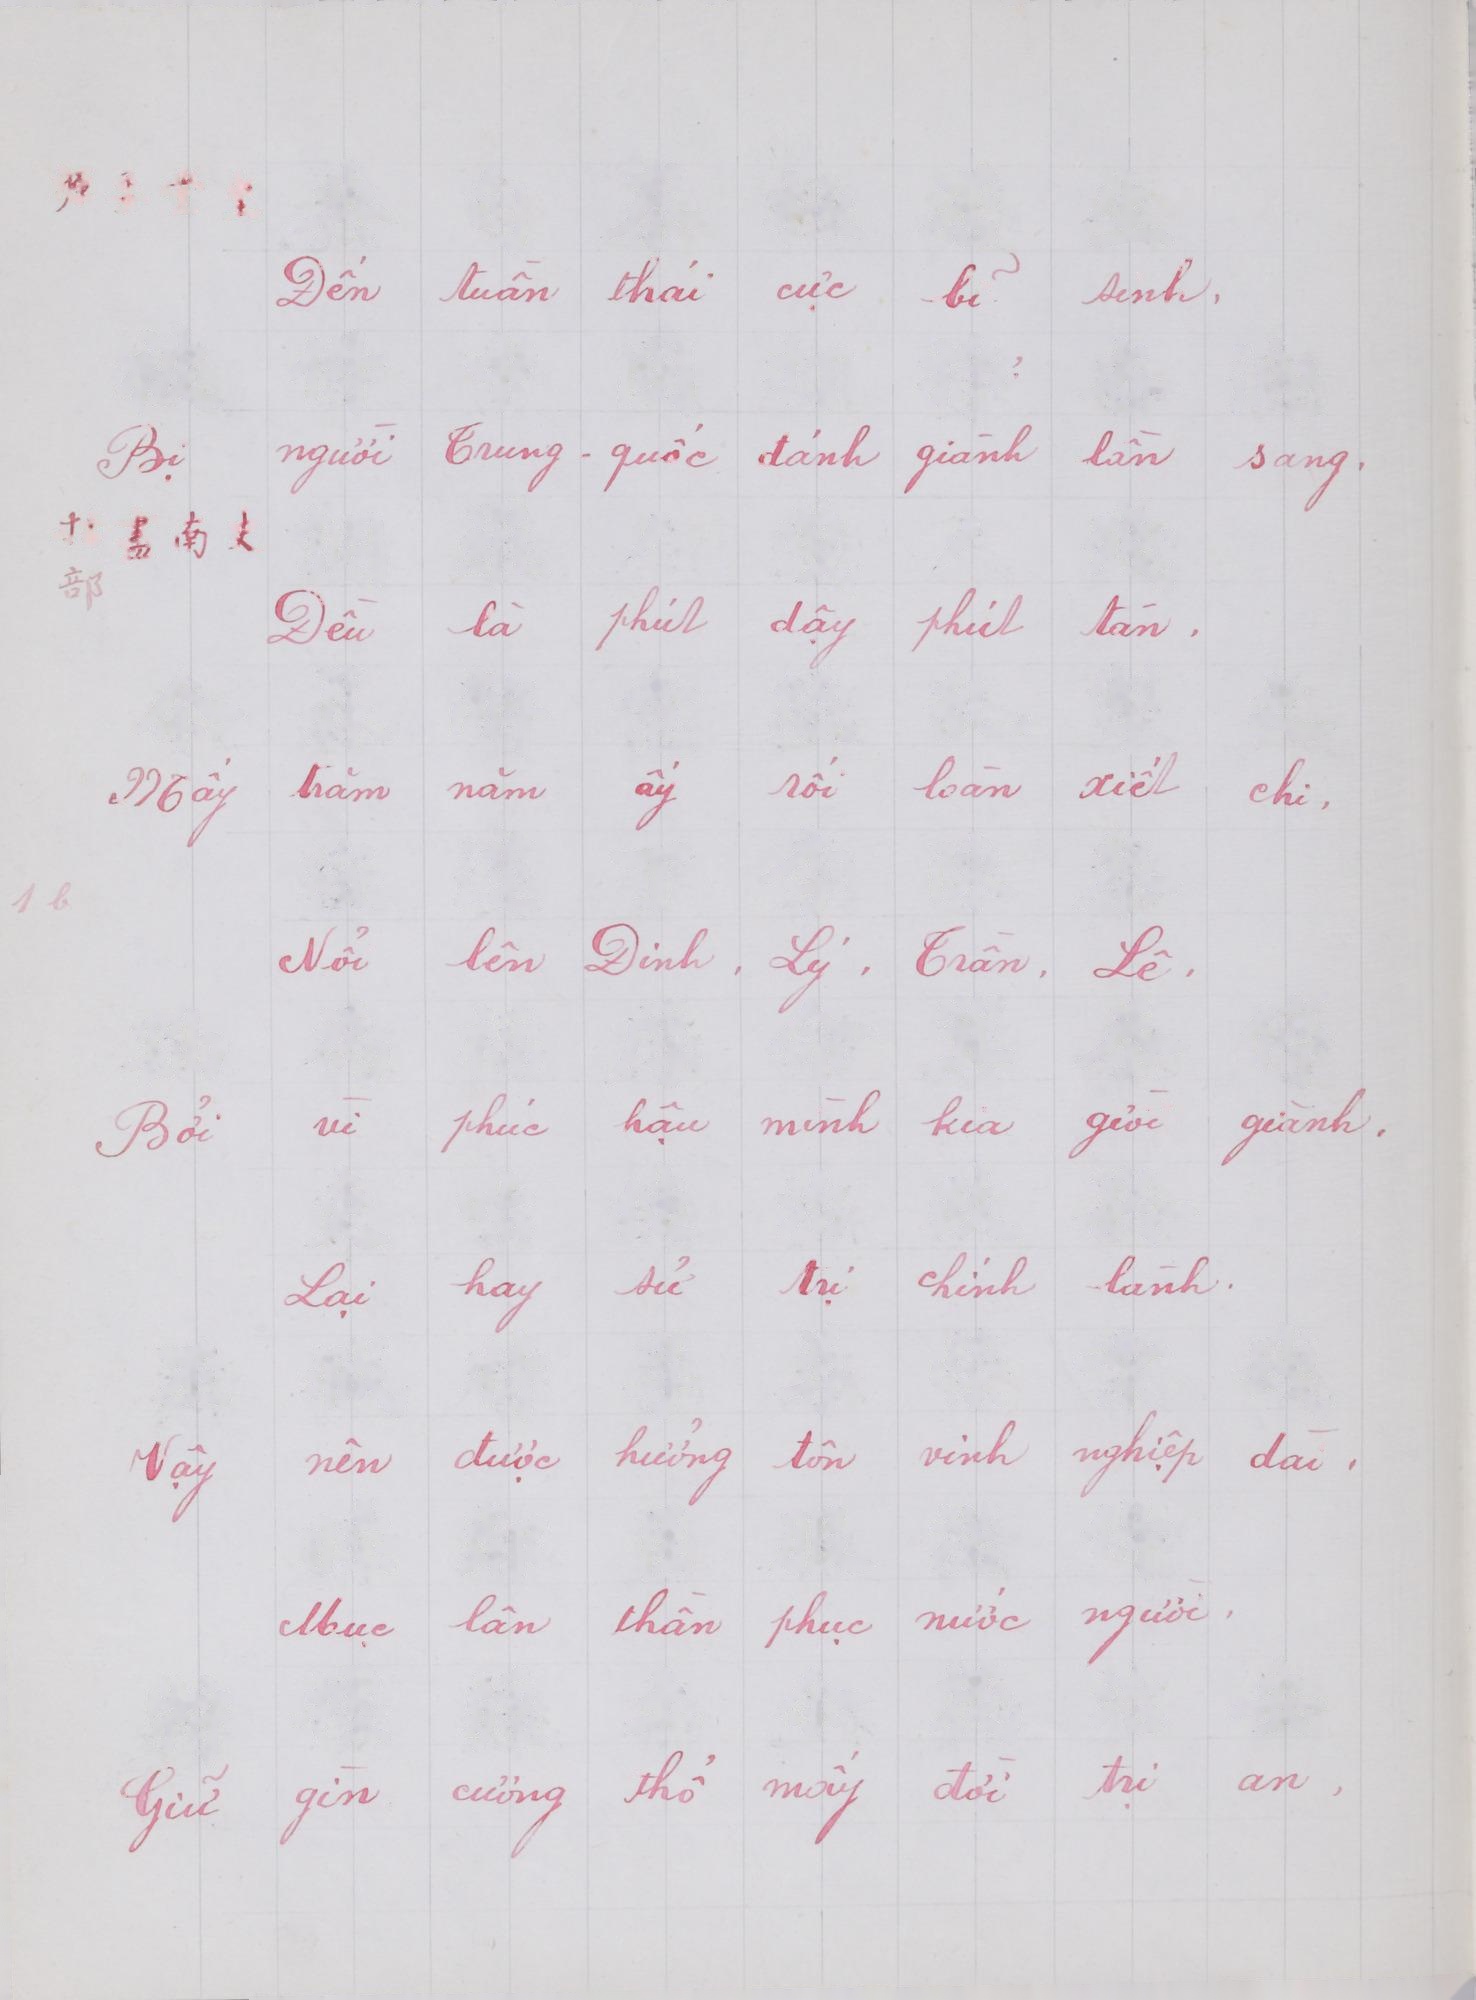 Đến tuần thái cực bĩ sinh,
Bị người Trung-quốc đánh giành lần sang.
十 書 南 大
部
Đều là phút dậy phút tàn,
Mấy trăm năm ấy rối loàn xiết chi,
1 b
Nổi lên Đinh, Lý, Trần, Lê,
Bởi vì phúc hậu mình kia giời giành,
Lại hay sử trị chính lành.
Vậy nên được hưởng tôn vinh nghiệp dài,
Mục lân thần phục nước người,
Giữ gìn cường thổ mấy đời trị an,